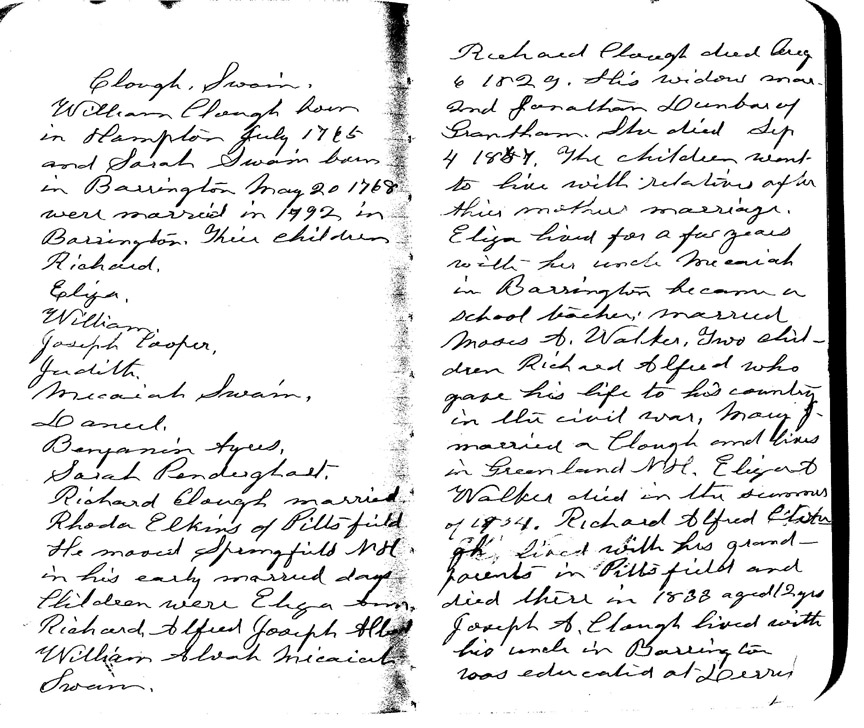 Clough, Swain.
William Clough born
in Hampton July 1765
and Sarah Swain born
in Barrington May 20 1768
were married in 1792 in
Barrington. Their children
Richard,
Eliza,
William,
Joseph Cooper,
Judith,
Micaiah Swain,
Daniel,
Benjamin Ayres,
Sarah Penderghast.
Richard Clough married
Rhoda Elkins of Pittsfield
He moved Springfield NH
in his early married days
Children were Eliza Ann,
Richard Alfred Joseph Albert
William Alvah Micaiah
Swain.
Richard Clough died Aug
6 1829. His widow mar-
2nd Jonathan Dunbar of
Grantham. She died Sep
4 1857. The children went
to live with relatives after
their mother marriage.
Eliza lived for a few years
with her uncle Micaiah
in Barrington became a
school teacher; married
Moses A. Walker. Two chil-
dren Richard Alfred who
gave his life to his country
in the civil war, Mary J-
married a Clough and lives
in Greenland NH. Eliza A
Walker died in the summer
of 1854. Richard Alfred
lived with his grand-
parents in Pittsfield and
died there in 1833 aged 12 yrs
Joseph A. Clough lived with
his uncle in Barrington
was educated at Derry